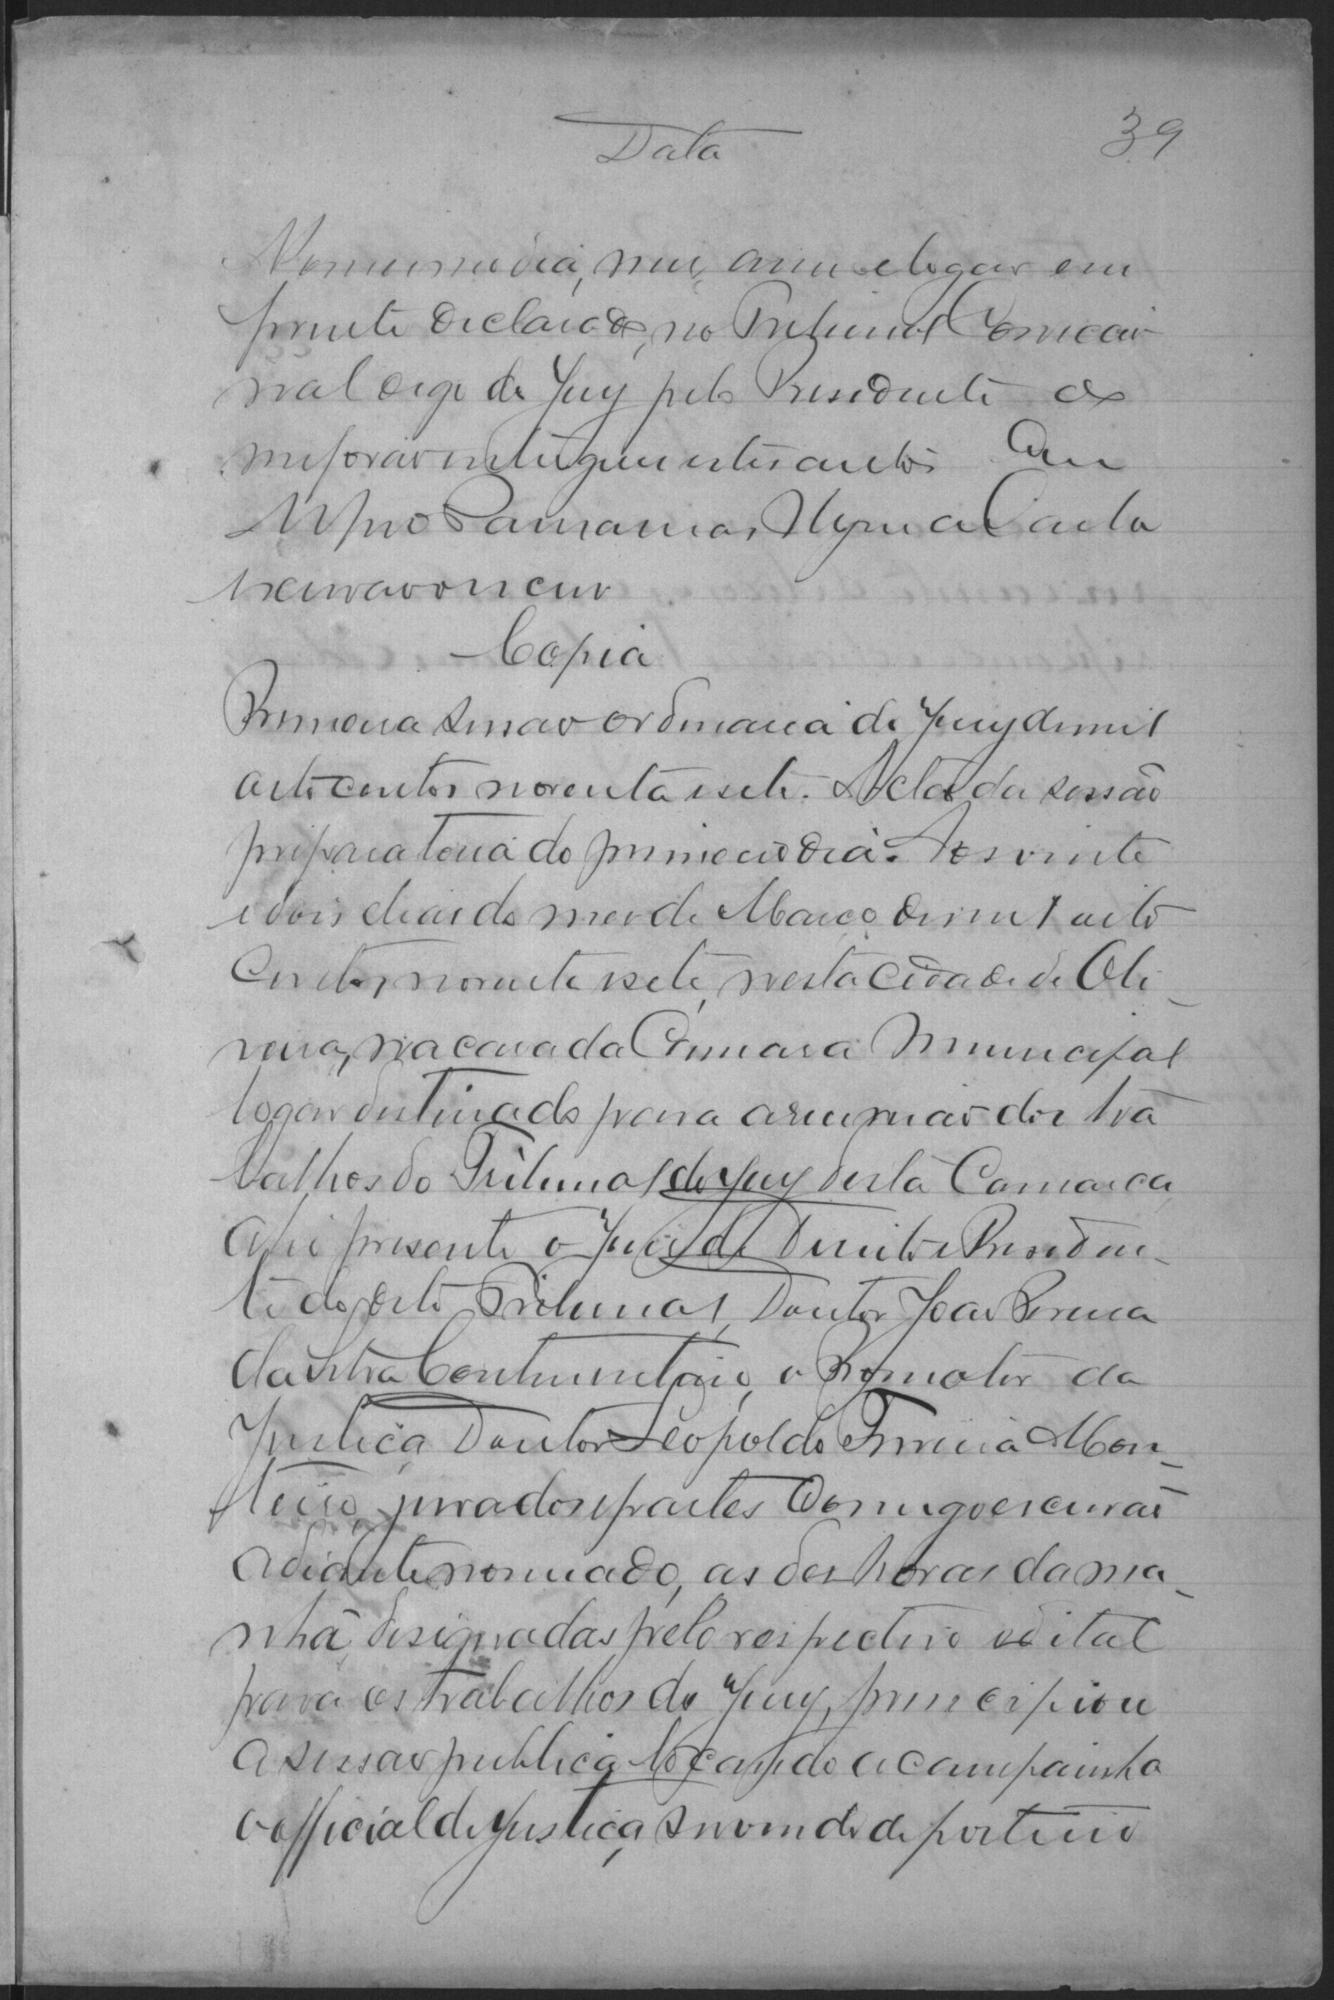 Data
39
No mesmo dia, mez, anno e logar em
frente declarado, no Tribunal Correcio-
nal digo de Jury pelo Presidente do
me forão entregues estes autos Eu
Carta
escrivão o escrevi
Copia
Primeira sessão ordinaria do Jury de mil
oito centos noventa e sete. Acta da sessão
preparatoria do primeiro dia. Aos vinte
e dois dias do mez de Março de mil oito
centos noventa e sete, nesta Cidade de Oli-
veira, na casa da Camara Municipal
logar destinado para a reunião dos tra
balhos do Tribunal do Jury desta Comarca
ahi presente o Juiz de Direito e Presiden-
te do dito Tribunal, Doutor João Pereira
da Silva Continentino, o Promotor da
Justiça Doutor Leopoldo Ferreira Mon-
teiro, jurados e partes Comigo escrivão
adiante nomeado, as dez horas da ma-
nhã, designadas pelo respectivo edital
para os trabalhos do Jury, principiou
a sessão publica tocando a campainha
o official de Justiça servindo de porteiro